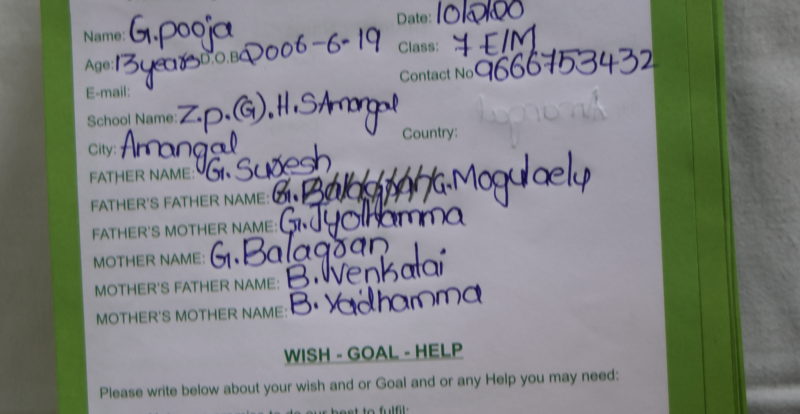 Name: G.pooja Date:
Age: 13 years D.O.B 2006-6-19 Class: 7 E/M
Contact No 9666753432
E-mail:
School Name: Z.p.(G).H.S Amangal
City: Amangal Country:
FATHER NAME: G. Suresh
FATHER'S FATHER NAME: G. Mogulaely
FATHER'S MOTHER NAME: G. Jyothamma
MOTHER NAME: G. Balagran
MOTHER'S FATHER NAME: B. Venkatai
MOTHER'S MOTHER NAME: B. Yaidhamma
WISH - GOAL - HELP
Please write below about your wish and or Goal and or any Help you may need:
best to fulfil: